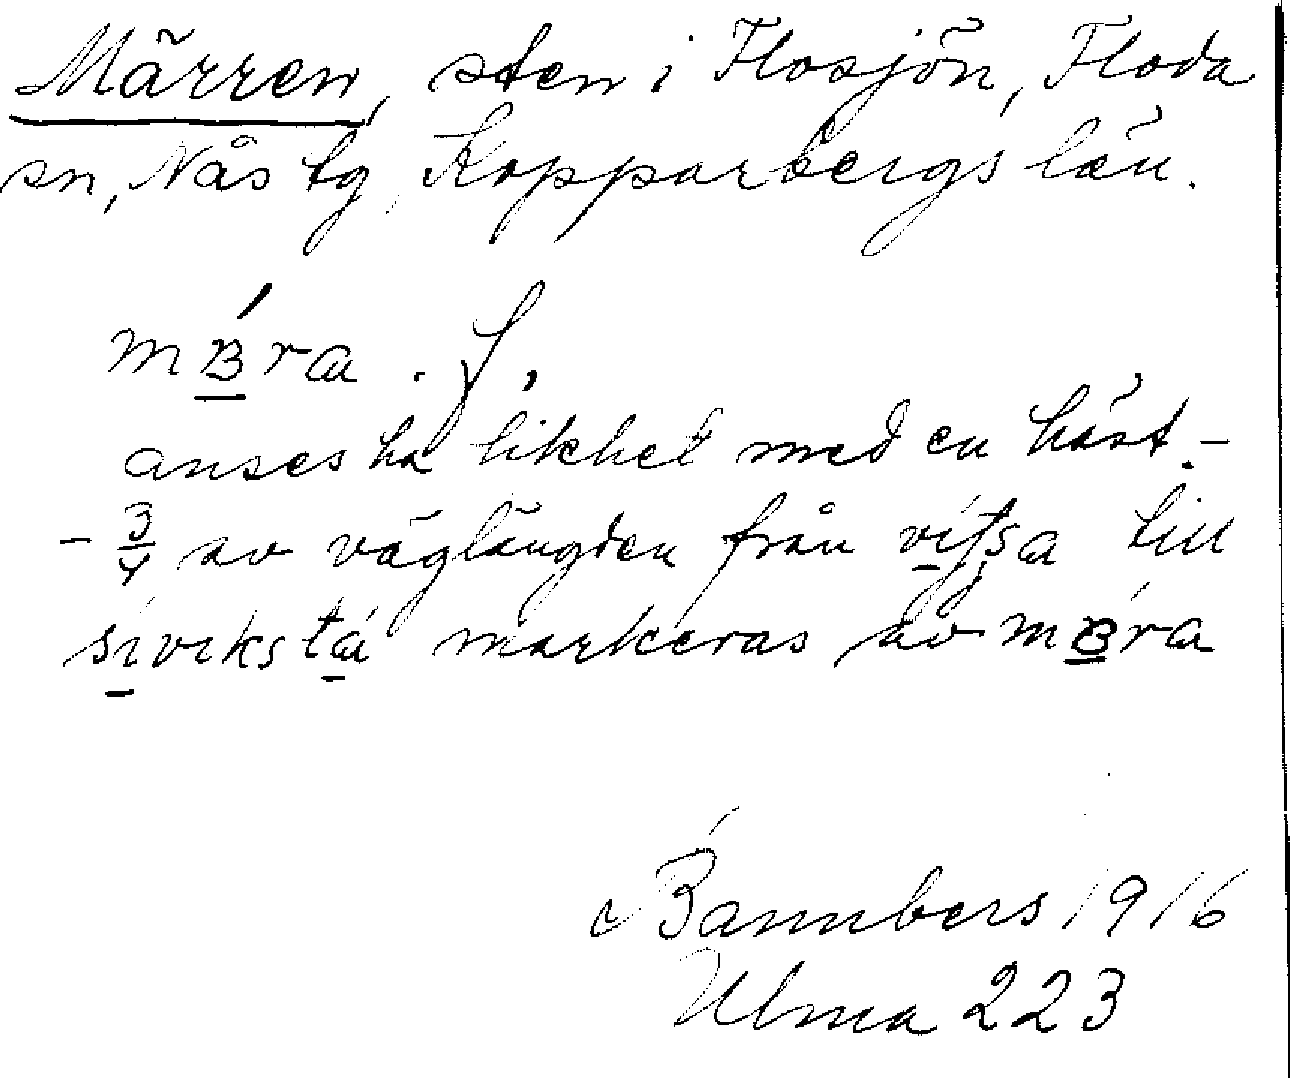 Märren, sten i Flosjön, Floda
sn, Nås tg, Kopparbergs län.
mɞ́ra. f,
anses ha likhet med en häst. -
- 3/4 av väglängden från vítsa till
sívikstá markeras av mɞ́ra
Bannbers 1916
Ulma 223